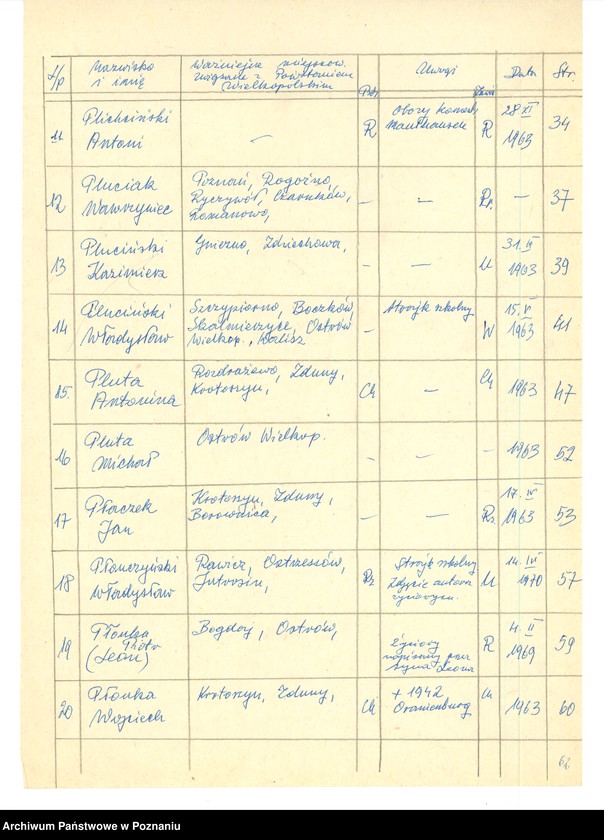 L/p Nazwisko i imię Ważniejsze miejscow. związane z Powstaniem Wielkopolskim Uwagi Data Str.
11 Plichciński Antoni — R Obozy koncen. Mauthausen R 28 XI 1963 34
12 Pluciak Wawrzyniec Poznań, Rogoźno, Ryczywół, Czarnków, Romanowo, — — Rz. — 37
13 Pluciński Kazimierz Gniezno, Zdziechowa, — — U 31. III 1963 39
14 Pluciński Władysław Szczypiorno, Boczków, Skalmierzyce, Ostrów Wielkop., Kalisz — Strajk szkolny W 15. VI 1963 41
15. Pluta Antonina Rozdrażewo, Zduny, Krotoszyn, Ch — Ch 1963 47
16 Pluta Michał Ostrów Wielkop. — — — 1963 52
17 Płaczek Jan Krotoszyn, Zduny, Borownica, — — Rz 17. IV 1963 53
18 Płonczyński Władysław Rawicz, Ostrzeszów, Jutrosin, Rz Strajk szkolny Zdjęcie autora życiorysu. U 14. 1970 57
19 Płonka Piotr (Leon) Bogdaj, Ostrów, Życiorys napisany przez syna Leona R 4. II 1969 59
20 Płonka Wojciech Krotoszyn, Zduny, Ch + 1942 Oranienburg Ch 1963 60
62
Archiwum Państwowe w Poznaniu